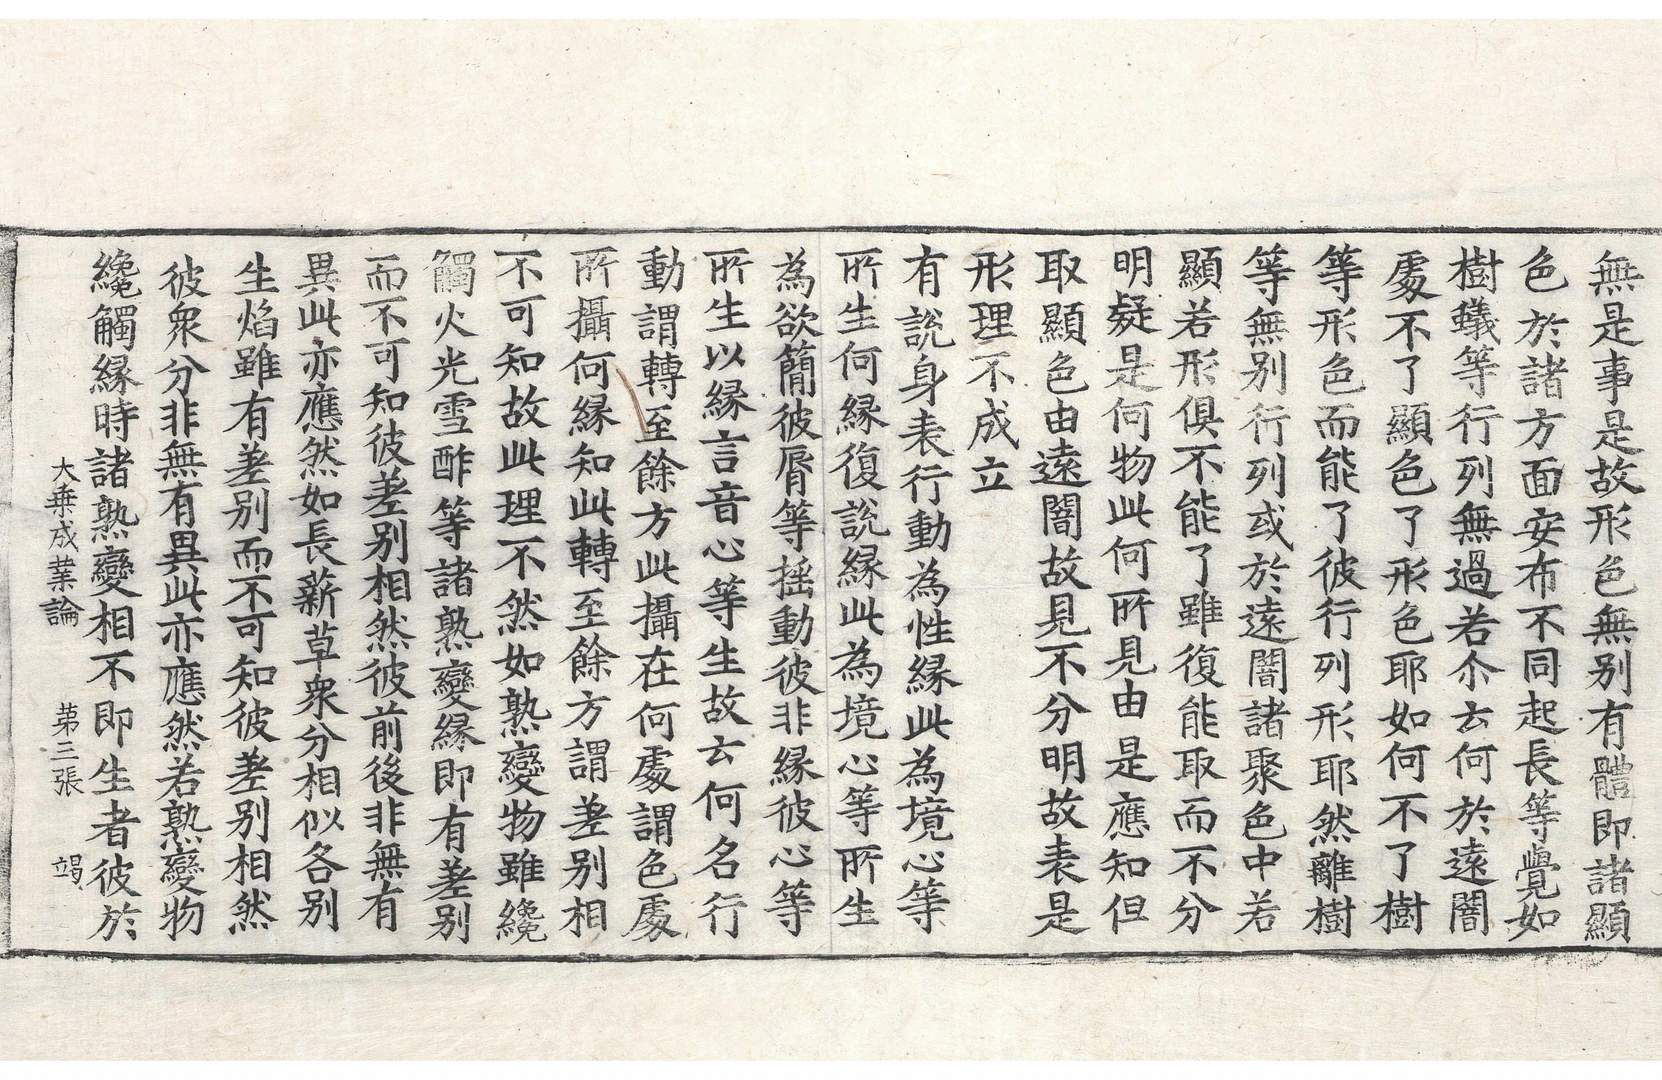 無是事是故形色無別有體即諸顯
色於諸方面安布不同起長等覺如
樹蟻等行列無過若尒云何於遠闇
處不了顯色了形色耶如何不了樹
等形色而能了彼行列形耶然離樹
等無別行列或於遠闇諸聚色中若
顯若形俱不能了雖復能取而不分
明疑是何物此何所見由是應知但
取顯色由遠闇故見不分明故表是
形理不成立
有說身表行動為性緣此為境心等
所生何緣復說緣此為境心等所生
為欲簡彼脣等搖動彼非緣彼心等
所生以緣言音心等生故云何名行
動謂轉至餘方此攝在何處謂色處
所攝何緣知此轉至餘方謂差別相
不可知故此理不然如熟變物雖纔
觸火光雪酢等諸熟變緣即有差別
而不可知彼差別相然彼前後非無有
異此亦應然如長薪草眾分相似各別
生焰雖有差別而不可知彼差別相然
彼眾分非無有異此亦應然若熟變物
纔觸緣時諸熟變相不即生者彼於
大乘成業論 第三張 竭